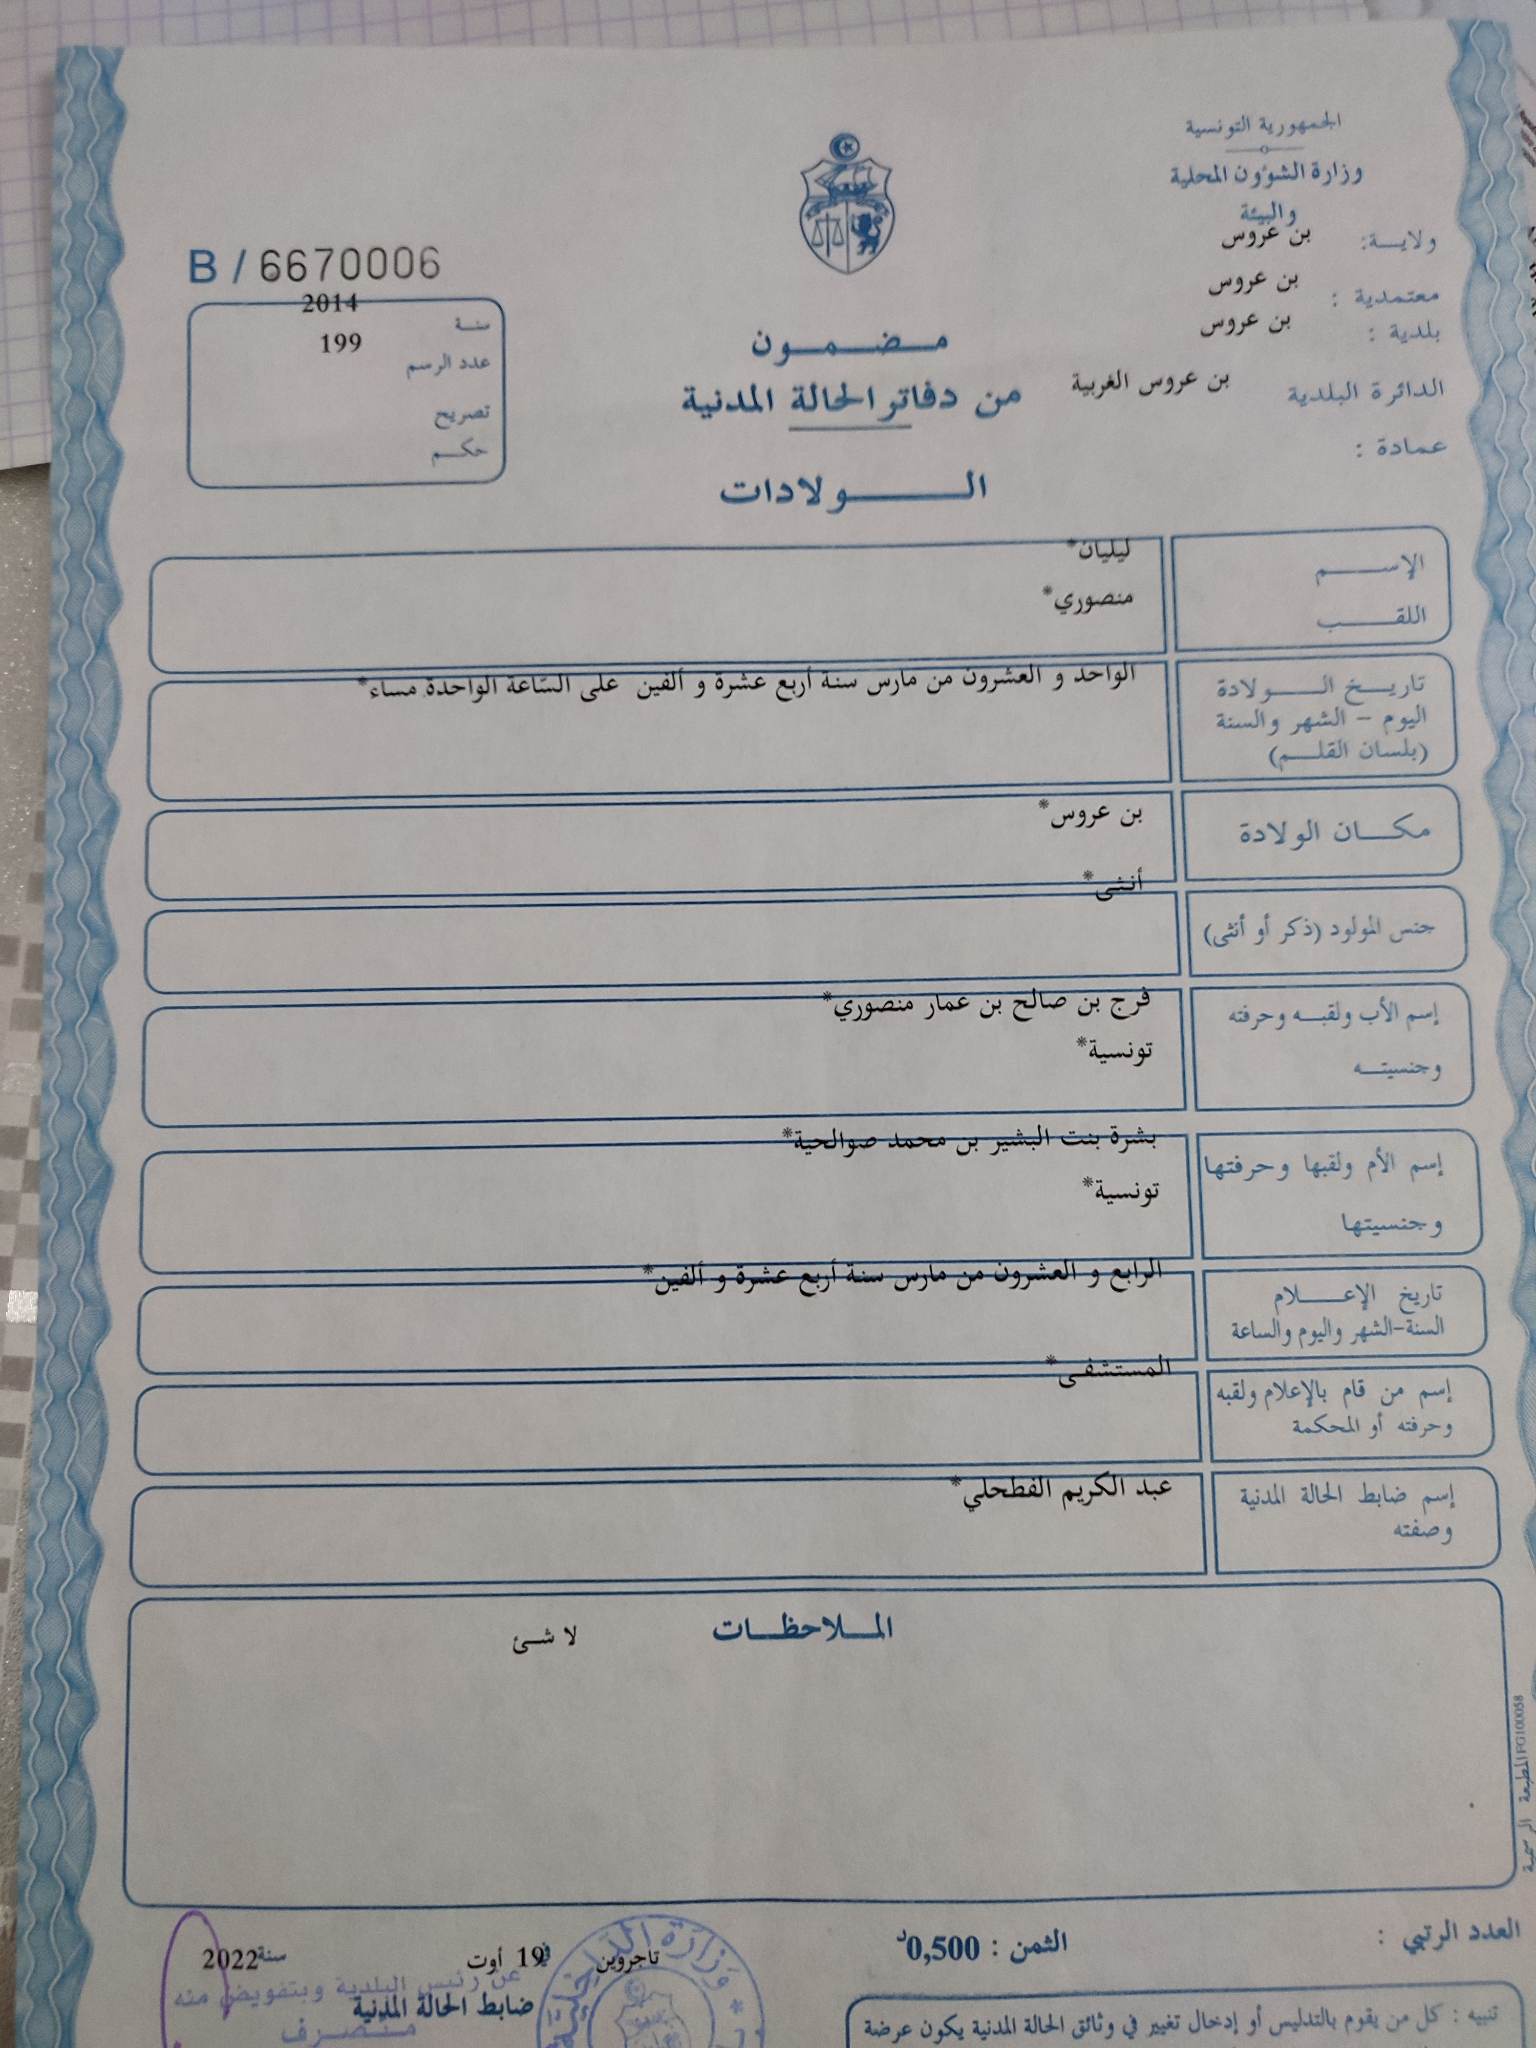 الجمهورية التونسية
وزارة الشؤون المحلية
والبيئة
ولايـــة: بن عروس
معتمدية : بن عروس
بلدية : بن عروس
الدائرة البلدية بن عروس الغربية
عمادة :
B / 6670006
سنـة 2014
عدد الرسم 199
تصريح
حكـم
مـضـمـون
من دفاتر الحالة المدنية
الـــولادات
الإســـم ليليان*
اللقـــب منصوري*
تاريــخ الـــولادة الواحد و العشرون من مارس سنة أربع عشرة و ألفين على السّاعة الواحدة مساء*
اليوم - الشهر والسنة
(بلسان القلـم)
مكـــان الولادة بن عروس*
جنس المولود (ذكر أو أنثى) أنثى*
إسم الأب ولقبـه وحرفته فرج بن صالح بن عمار منصوري*
وجنسيتـه تونسية*
إسم الأم ولقبها وحرفتها بشرة بنت البشير بن محمد صوالحية*
وجنسيتها تونسية*
تاريخ الإعــــلام الرابع و العشرون من مارس سنة أربع عشرة و ألفين*
السنة-الشهر واليوم والساعة
إسم من قام بالإعلام ولقبه المستشفى*
وحرفته أو المحكمة
إسم ضابط الحالة المدنية عبد الكريم الفطحلي*
وصفته
المـلاحظـات
لا شئ
المطبعة الرسمية FG100058
العدد الرتبي :
الثمن : 0,500د
تاجروين في 19 أوت سنة 2022
عن رئيس البلدية وبتفويض منه
ضابط الحالة المدنية
متصرف
وزارة الداخلية
تنبيه : كل من يقوم بالتدليس أو إدخال تغيير في وثائق الحالة المدنية يكون عرضة